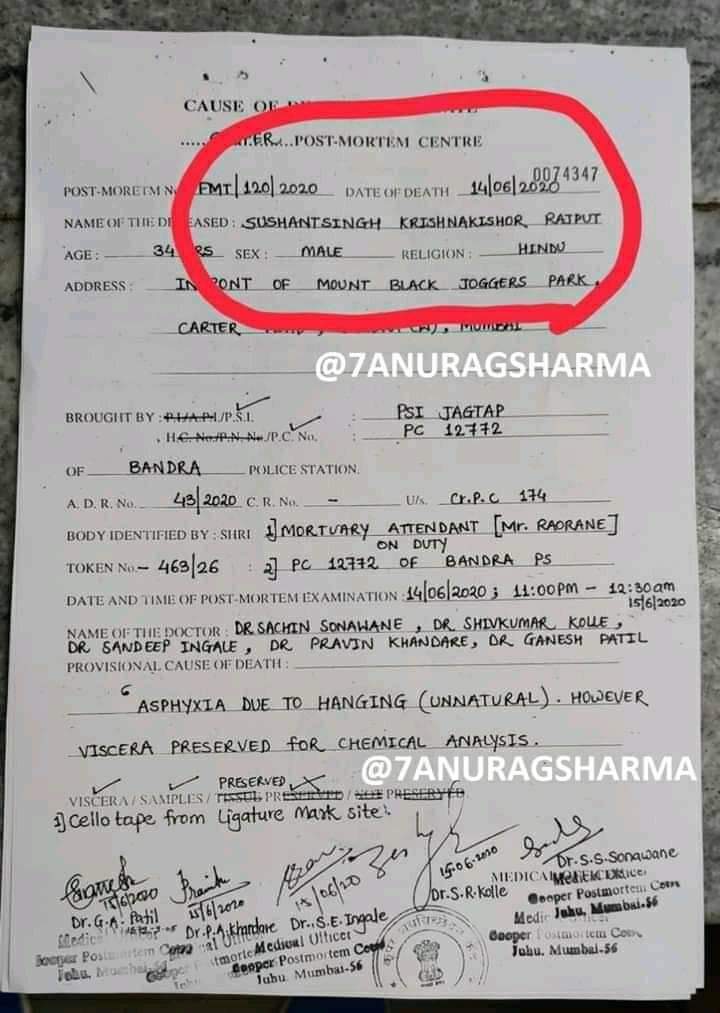 CAUSE OF
POST-MORTEM CENTRE
0074347
POST-MORETM N FMT/120/2020 DATE OF DEATH 14/06/2020
NAME OF THE DECEASED : SUSHANTSINGH KRISHNAKISHOR RAJPUT
AGE : 34 YRS SEX : MALE RELIGION : HINDU
ADDRESS : IN FRONT OF MOUNT BLACK JOGGERS PARK,
CARTER (W), MUMBAI
@7ANURAGSHARMA
BROUGHT BY : P.I./A.P.I./P.S.I. : PSI JAGTAP
H.C. No./P.N. No./P.C. No. : PC 12772
OF BANDRA POLICE STATION.
A. D. R. No. 43/2020 C. R. No. - U/s. Cr.P.C 174
BODY IDENTIFIED BY : SHRI 1] MORTUARY ATTENDANT [Mr. RAORANE]
ON DUTY
TOKEN No.- 463/26 : 2] PC 12772 OF BANDRA PS
DATE AND TIME OF POST-MORTEM EXAMINATION : 14/06/2020 ; 11:00PM - 12:30am
15/6/2020
NAME OF THE DOCTOR : DR SACHIN SONAWANE, DR SHIVKUMAR KOLLE,
DR SANDEEP INGALE, DR PRAVIN KHANDARE, DR GANESH PATIL
PROVISIONAL CAUSE OF DEATH :
ASPHYXIA DUE TO HANGING (UNNATURAL). HOWEVER
VISCERA PRESERVED FOR CHEMICAL ANALYSIS.
@7ANURAGSHARMA
PRESERVED
VISCERA / SAMPLES / TISSUE PRESERVED / NOT PRESERVED
1] Cello tape from Ligature Mark site.
15/6/2020 15/6/2020 15/06/20 15-06-2020
MEDICAL OFFICER
Dr. G.A. Patil Dr. P.A. Khandare Dr. S.E. Ingale Dr. S.R. Kolle Dr. S.S. Sonawane
Medical Officer
Cooper Postmortem Centre
Juhu, Mumbai-56
Medical Officer
Cooper Postmortem Centre
Juhu, Mumbai-56
Cooper Postmortem
Juhu, Mumbai-56